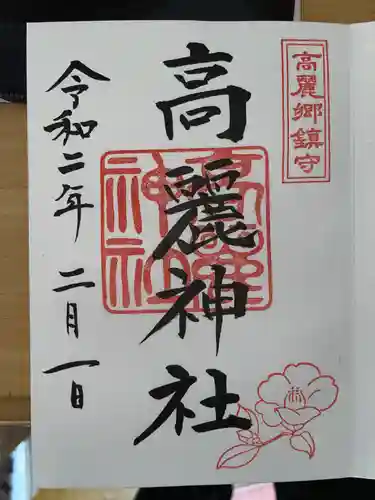 高麗郷鎮守
高麗神社
高麗
神社
令和二年 二月一日